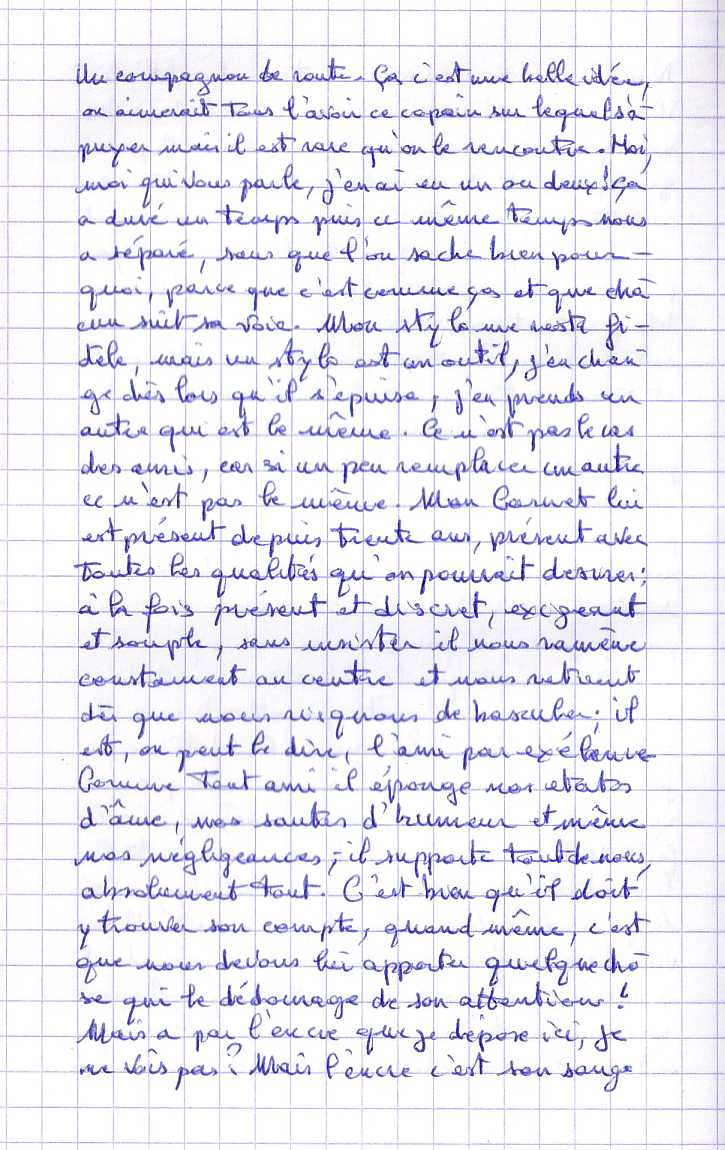 Un compagnon de route. Ça c'est une belle idée,
on aimerait tous l'avoir ce copain sur lequel s'ap
puyer mais il est rare qu'on le rencontre. Moi,
moi qui vous parle, j'en ai eu un ou deux! Ça
a duré un temps puis ce même temps nous
a séparé, sans que l'on sache bien pour-
quoi, parce que c'est comme ças et que cha
cun suit sa voie. Mon stylo me reste fi-
dèle, mais un stylo est un outil, j'en chan
ge dès lors qu'il s'épuise, j'en prends un
autre qui est le même. Ce n'est pas le cas
des amis, car si un peu remplacer un autre
ce n'est pas le même. Mon Carnet lui
est présent depuis trente ans, présent avec
toutes les qualités qu'on pourrait desirer;
à la fois présent et discret, exigeant
et souple, sans insister il nous ramène
constament au centre et nous retient
dès que nous risquons de basculer; il
est, on peut le dire, l'ami par exélence
Comme tout ami il éponge nos etats
d'âme, nos sautes d'humeur et même
nos négligeances; il supporte tout de nous,
absolument tout. C'est bien qu'il doit
y trouver son compte, quand même, c'est
que nous devons lui apporter quelque cho
se qui le dédomage de son attention!
Mais a par l'encre que je dépose ici, je
ne vois pas? Mais l'encre c'est son sang